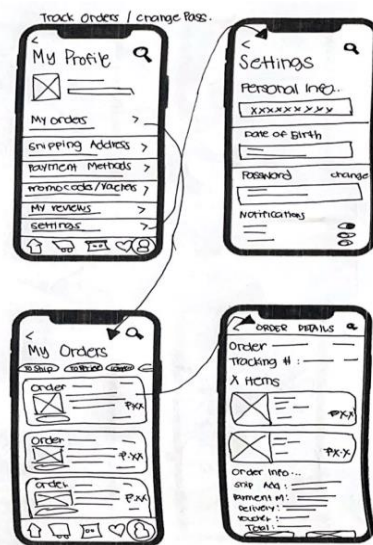 Track Orders / change Pass.
My Profile
My orders >
Shipping Address >
Payment Methods >
Promocodes/Vochers >
My reviews >
Settings >
<
Settings
Personal Info..
XXXXXXXXX
Date of Birth
Password change
Notifications
<
My Orders
To Ship
Order
₱XX
Order
₱.XX
Order
₱.XX
< ORDER DETAILS
Order
Tracking # :
X Items
₱X.X
₱X.X
Order Info...
Ship Add :
Payment M :
Delivery :
Voucher :
Total :